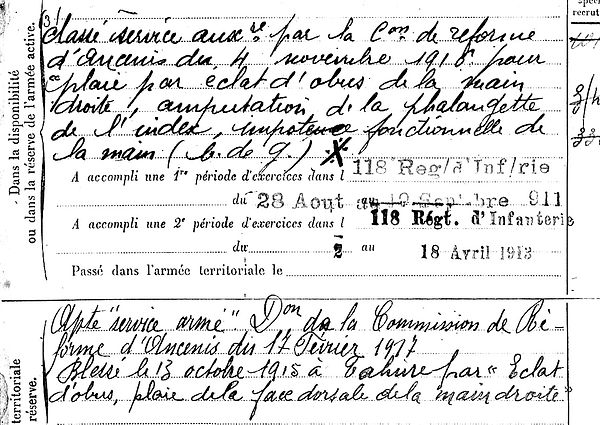 (3)
Classé service auxre par la Con de réforme
d'Ancenis du 4 novembre 1916 pour
plaie par éclat d'obus de la main
droite, amputation de la phalangette
de l'index, impotence fonctionnelle de
la main (b. de g.) X
A accompli une 1re période d'exercices dans l 118 Reg/d'Inf/rie
du 28 Aout au 19 Septbre 911
A accompli une 2e période d'exercices dans l 118 Régt. d'Infanterie
du 2 au 18 Avril 1913
Passé dans l'armée territoriale le
Apte "service armé" Don de la Commission de Ré-
forme d'Ancenis du 17 Février 1917
Blessé le 13 octobre 1915 à Tahure par "Eclat
d'obus, plaie de la face dorsale de la main droite"
Dans la disponibilité
ou dans la réserve de l'armée active.
territoriale
réserve.